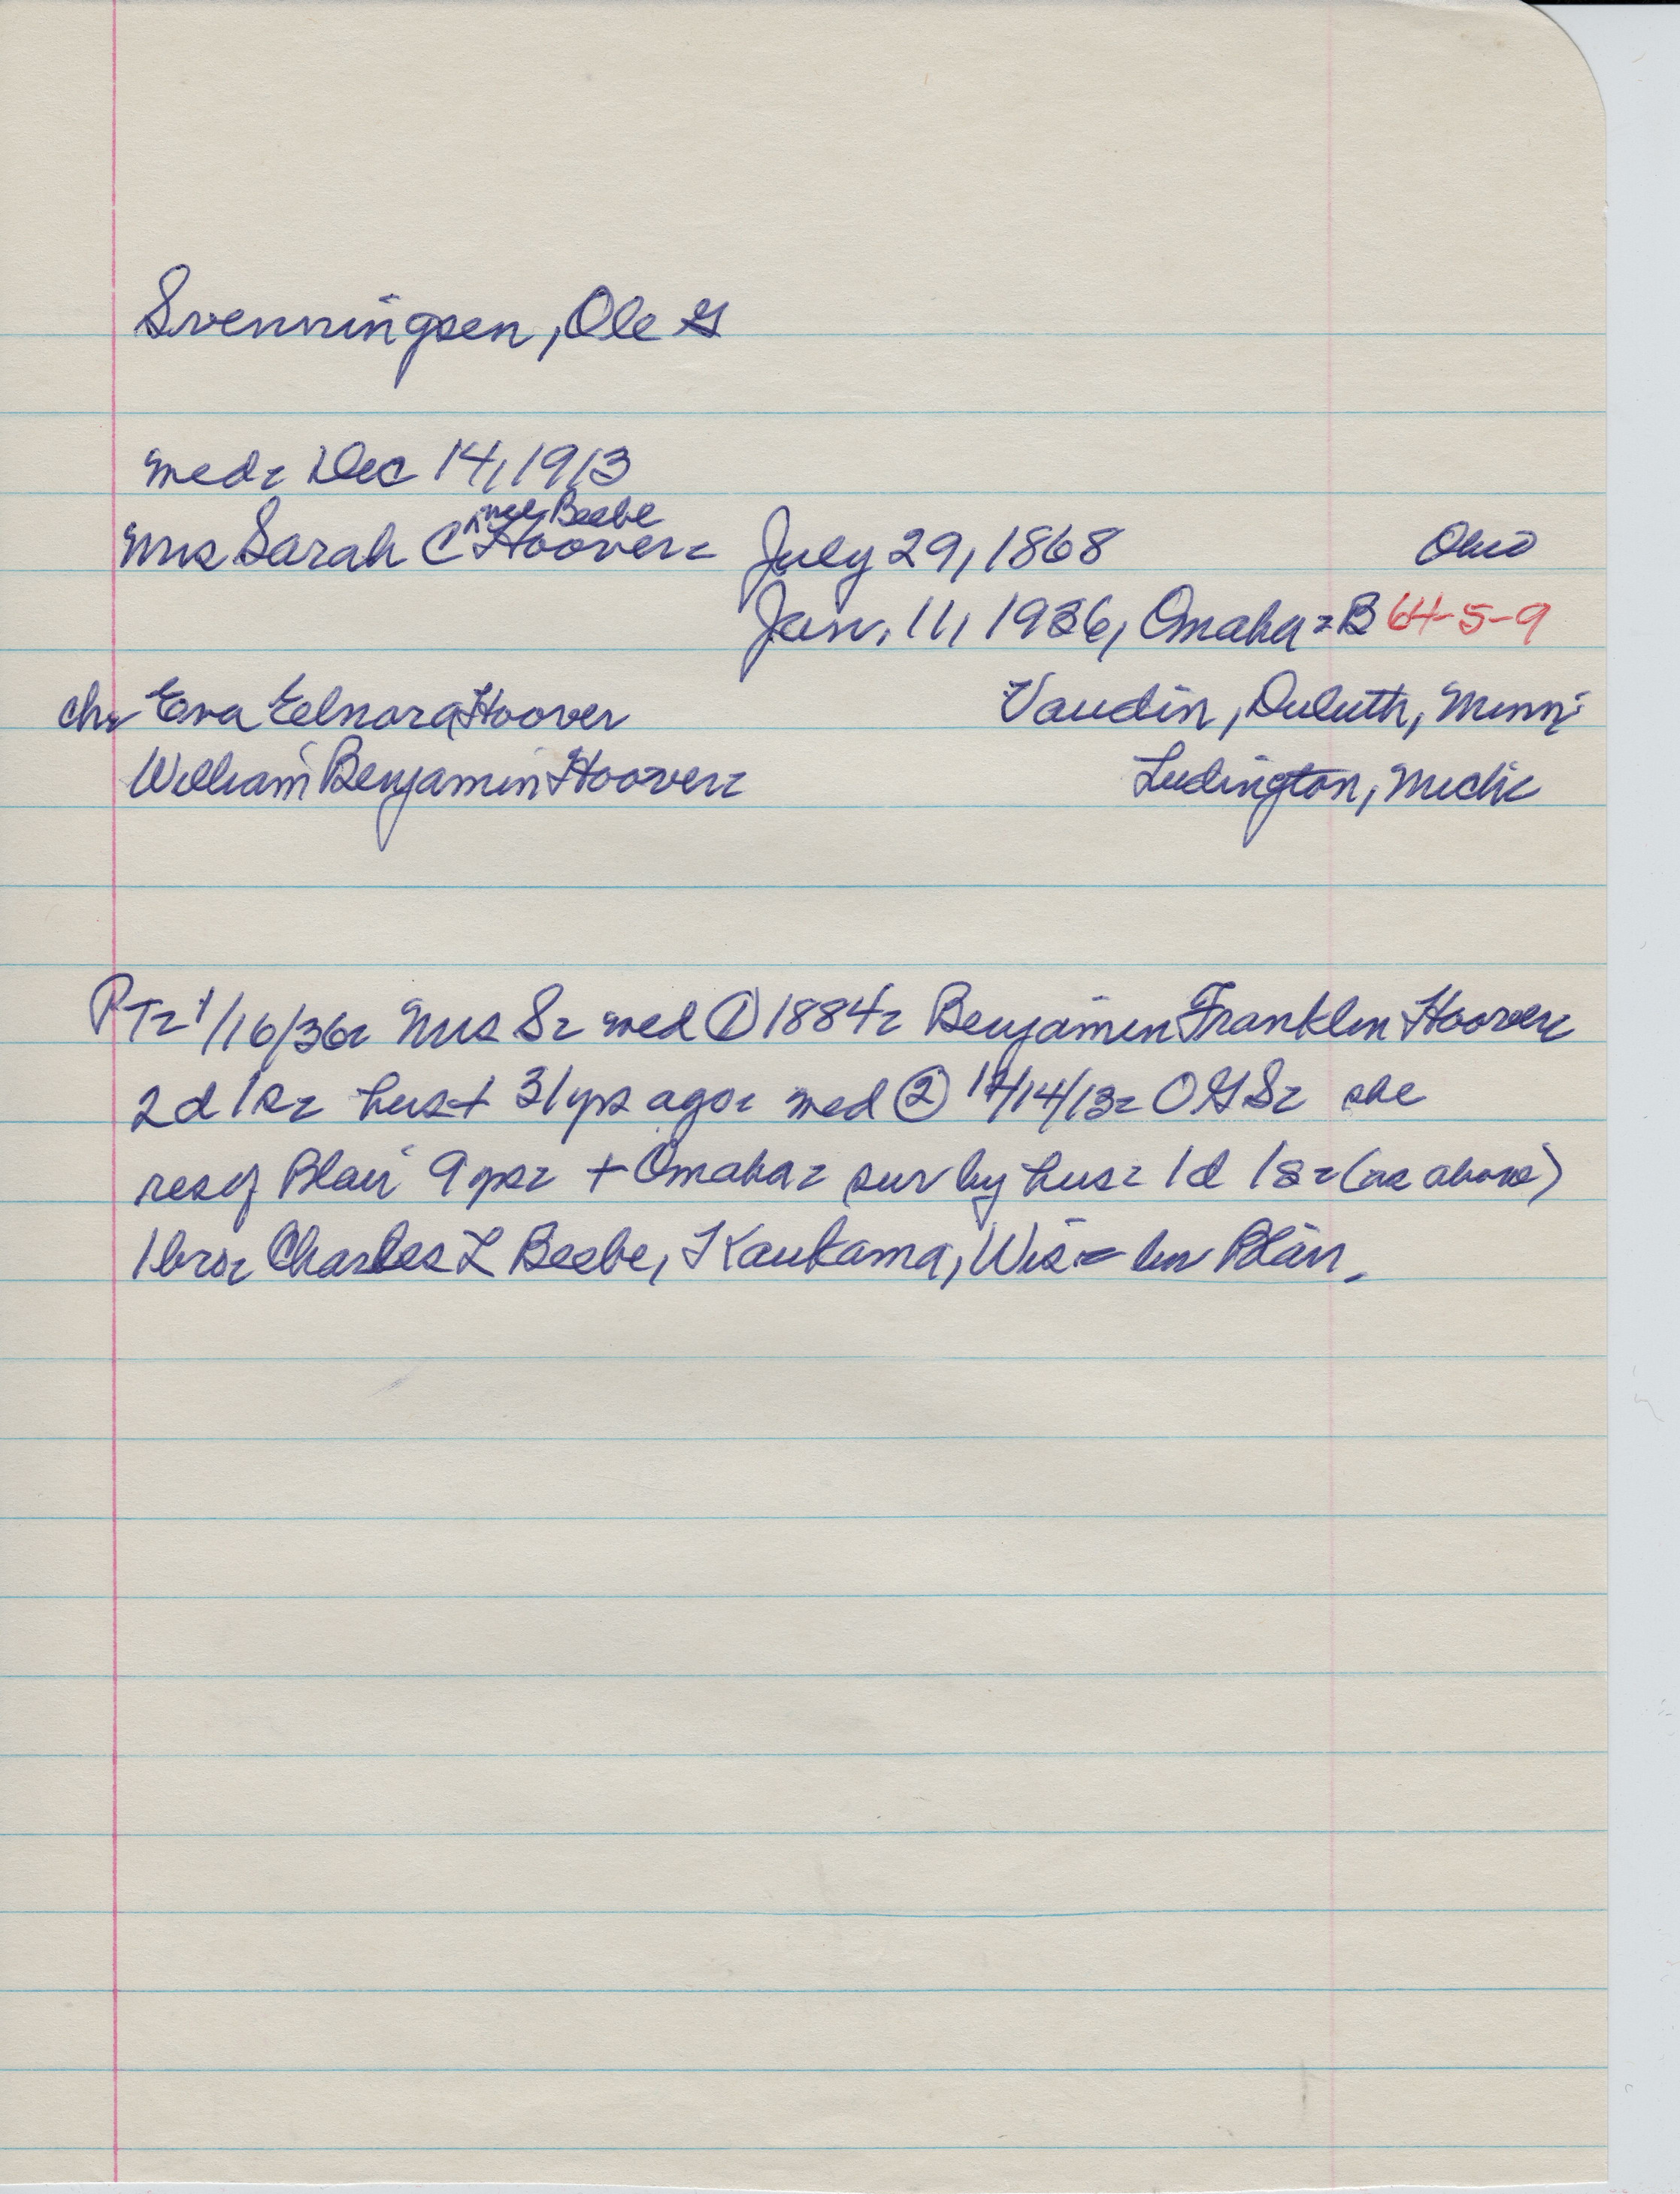 Svenningsen, Ole G
med- Dec 14, 1913
nee Beebe
Mrs Sarah C Hoover- July 29, 1868 Ohio
Jan. 11, 1936, Omaha-B 64-5-9
ch- Eva Eelnora Hoover Vaudin, Duluth, Minn-
William Benjamin Hoover- Ludington, Mich-
PT- 1/16/36- Mrs S- med ① 1884- Benjamin Franklin Hoover-
2d 1s- hus + 31 yrs ago- med ② 12/14/13- OGS- she
res of Blair 9 yrs- + Omaha- sur by hus- 1d 1s- (as above)
1 bro- Charles L Beebe, Kaukama, Wis- bur Blair.